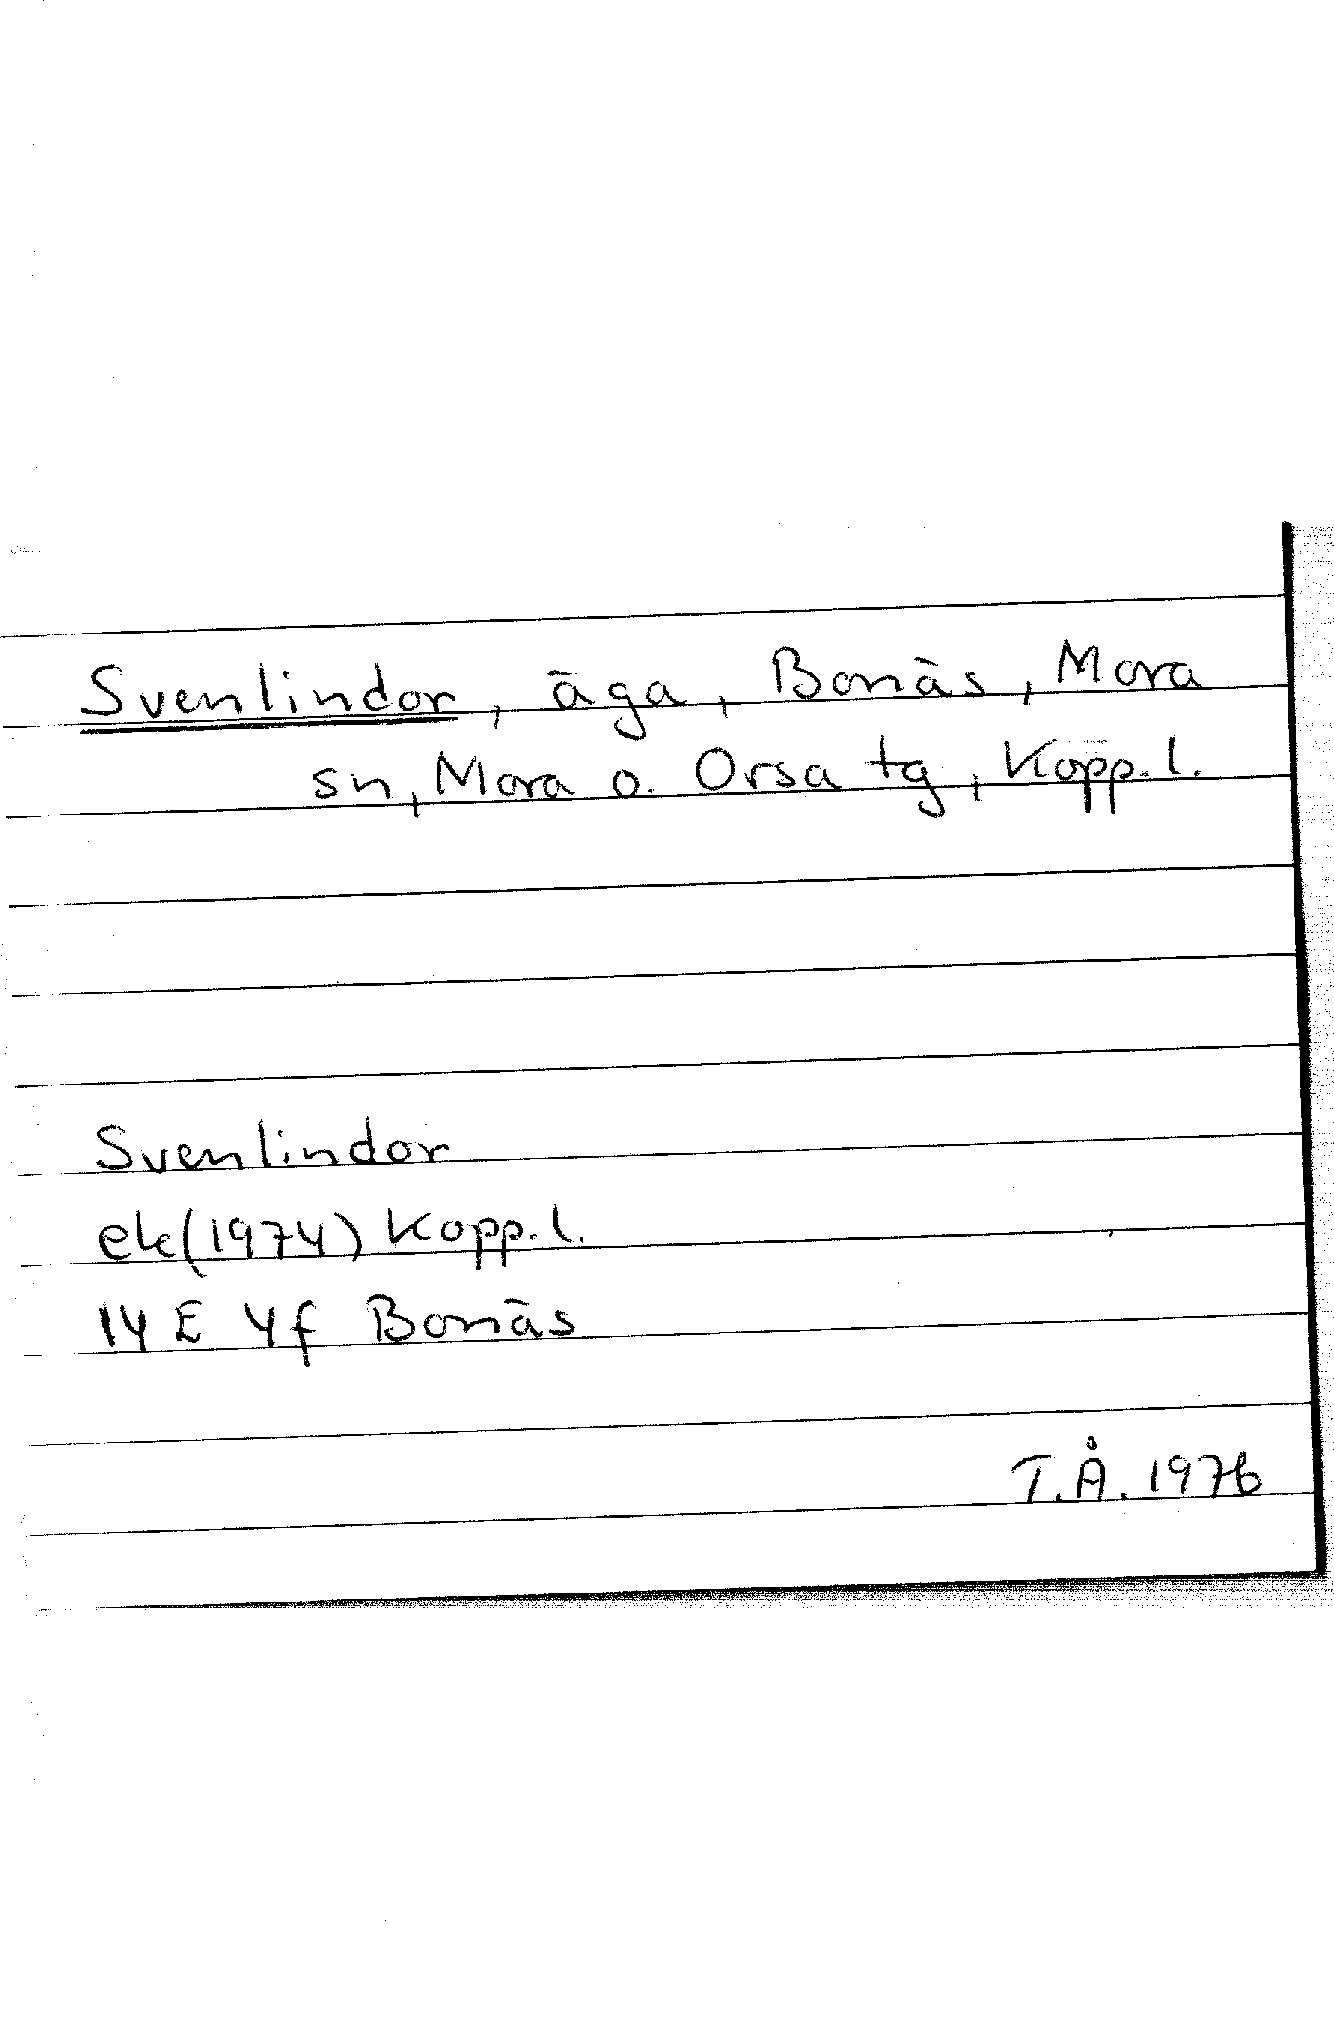 Svenlindor, äga, Bonäs, Mora
sn, Mora o. Orsa tg, Kopp. l.
Svenlindor
ek(1974) Kopp. l.
14 E 4f Bonäs
T.Å. 1976